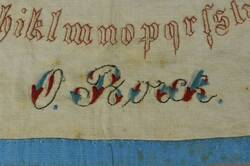 hiklmnopqrſst
O. Borck.